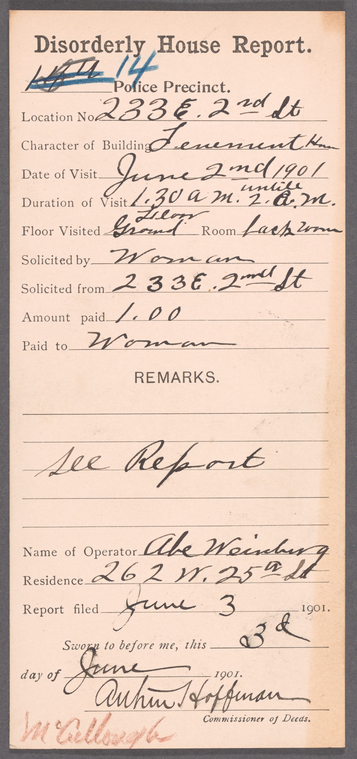 Disorderly House Report.
14
Police Precinct.
Location No. 233 E. 2nd St
Character of Building Tenement House
Date of Visit June 2nd 1901
Duration of Visit 1.30 a M. untill 2. A. M.
Floor Visited Ground Floor Room back room
Solicited by Woman
Solicited from 233 E. 2nd St
Amount paid 1.00
Paid to Woman
REMARKS.
See Report
Name of Operator Abe Weinburg
Residence 262 W. 25th St
Report filed June 3 1901.
Sworn to before me, this 3d
day of June 1901.
Arthur S Hoffman
Commissioner of Deeds.
McCullough